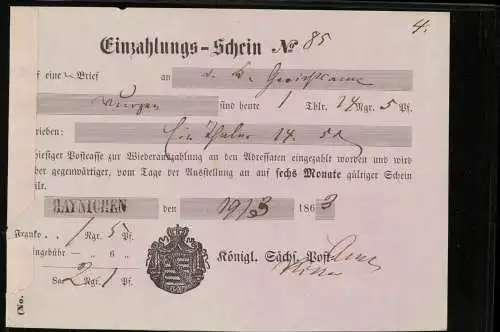 4.
Einzahlungs-Schein № 85
f eine Brief an d. K. Gerichtsamt
Wurzen sind heute 1 Thlr. 14 Ngr. 5 Pf.
rieben: Ein Thaler 14. 5
hiesiger Postcasse zur Wiederauszahlung an den Adressaten eingezahlt worden und wird
ber gegenwärtiger, vom Tage der Ausstellung an auf sechs Monate gültiger Schein
ilt.
HAYNICHEN den 19/3 1863
Franko . . 1 Ngr. 5 Pf.
ingebühr — „ 6 „
Sa: 2 Ngr. 1 Pf.
Königl. Sächs. Post-
(No.